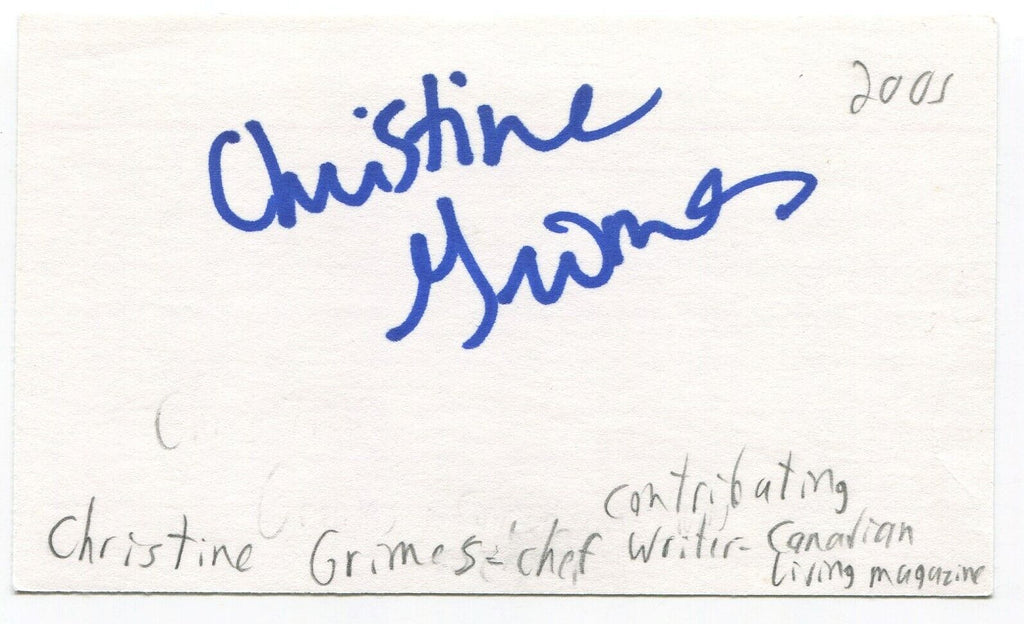 2001
Christine
Grimes
Christine Grimes - chef contributing
writer - Canadian
Living magazine